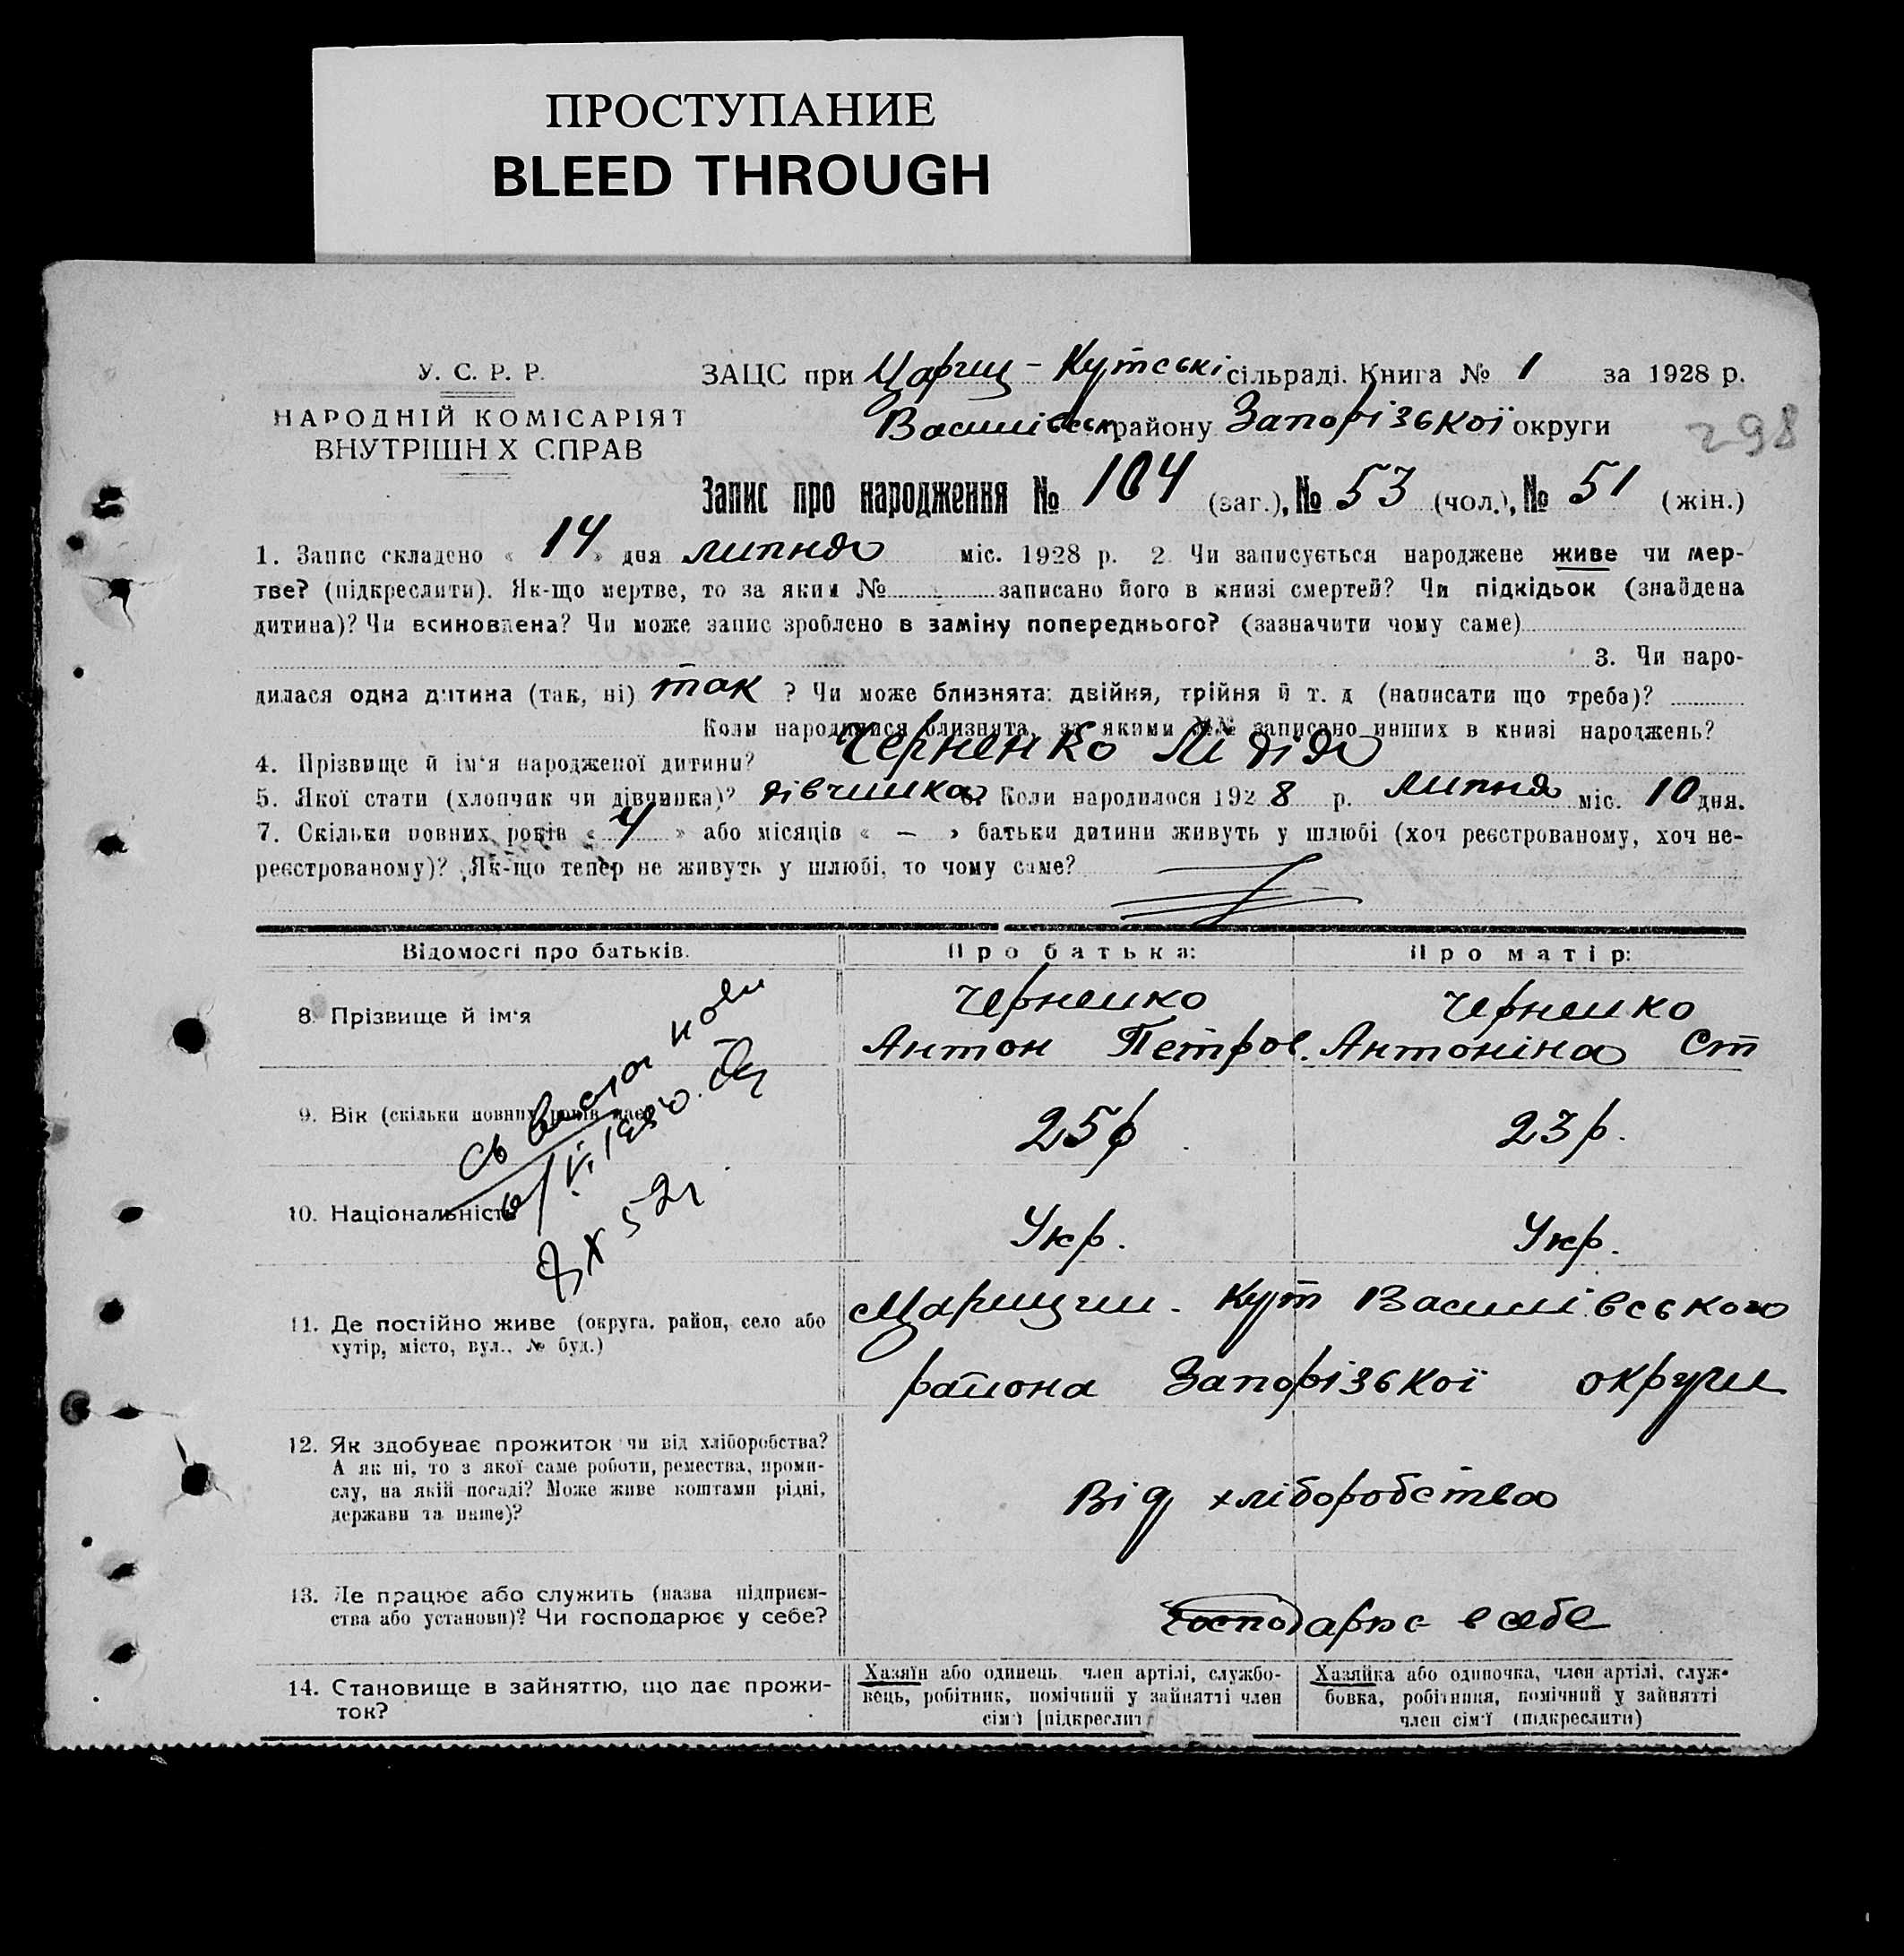 ПРОСТУПАНИЕ
BLEED THROUGH
У. С. Р. Р.
НАРОДНІЙ КОМІСАРІЯТ
ВНУТРІШН Х СПРАВ
ЗАЦС при Цариц - Кутські сільраді. Книга № 1 за 1928 р.
Василівськ району Запорізької округи
298
Запис про народження № 104 (заг.), № 53 (чол.), № 51 (жін.)
1. Запис складено « 14 » дня липня міс. 1928 р. 2. Чи записується народжене живе чи мер-
тве? (підкреслити). Як-що мертве, то за яким № записано його в книзі смертей? Чи підкідьок (знайдена
дитина)? Чи всиновлена? Чи може запис зроблено в заміну попереднього? (зазначити чому саме)
3. Чи наро-
дилася одна дитина (так, ні) так ? Чи може близнята: двійня, трійня й т. д (написати що треба)?
Коли народилися близнята, за якими №№ записано инших в книзі народжень?
4. Прізвище й ім'я народженої дитини? Черненко Лідія
5. Якої стати (хлопчик чи дівчинка)? дівчинка 6. Коли народилося 192 8 р. липня міс. 10 дня.
7. Скільки повних років « 4 » або місяців « — » батьки дитини живуть у шлюбі (хоч реєстрованому, хоч не-
реєстрованому)? Як-що тепер не живуть у шлюбі, то чому саме?
Відомості про батьків.
Про батька:
Про матір:
8. Прізвище й ім'я
Черненко
Антон Петров.
Черненко
Антоніна Ст
9. Вік (скільки повних років має)
25 р
23 р.
10. Національність
Укр.
Укр.
11. Де постійно живе (округа, район, село або
хутір, місто, вул., № буд.)
Царицин - Кут Василівського
района Запорізької округи
12. Як здобуває прожиток чи від хліборобства?
А як ні, то з якої саме роботи, ремества, проми-
слу, на якій посаді? Може живе коштами рідні,
держави та инше)?
Від хліборобства
13. Де працює або служить (назва підприєм-
ства або установи)? Чи господарює у себе?
Господарює в себе
14. Становище в зайняттю, що дає прожи-
ток?
Хазяїн або одинець член артілі, службо-
вець, робітник, помічний у зайнятті член
сім'ї [підкреслит
Хазяйка або одиночка, член артілі, служ-
бовка, робітниця, помічний у зайнятті
член сім'ї (підкреслити)